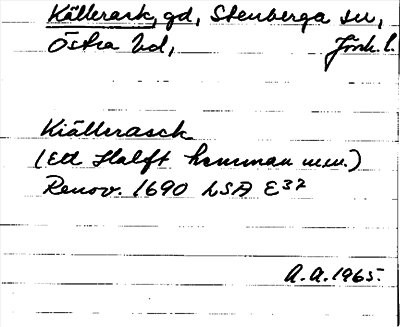 Källerask, gd, Stenberga sn,
Östra hd, Jönk. l.
Kiällerasck
(Ett Halft hemman m.m.)
Renov. 1690 LSA E37
A.A. 1965.